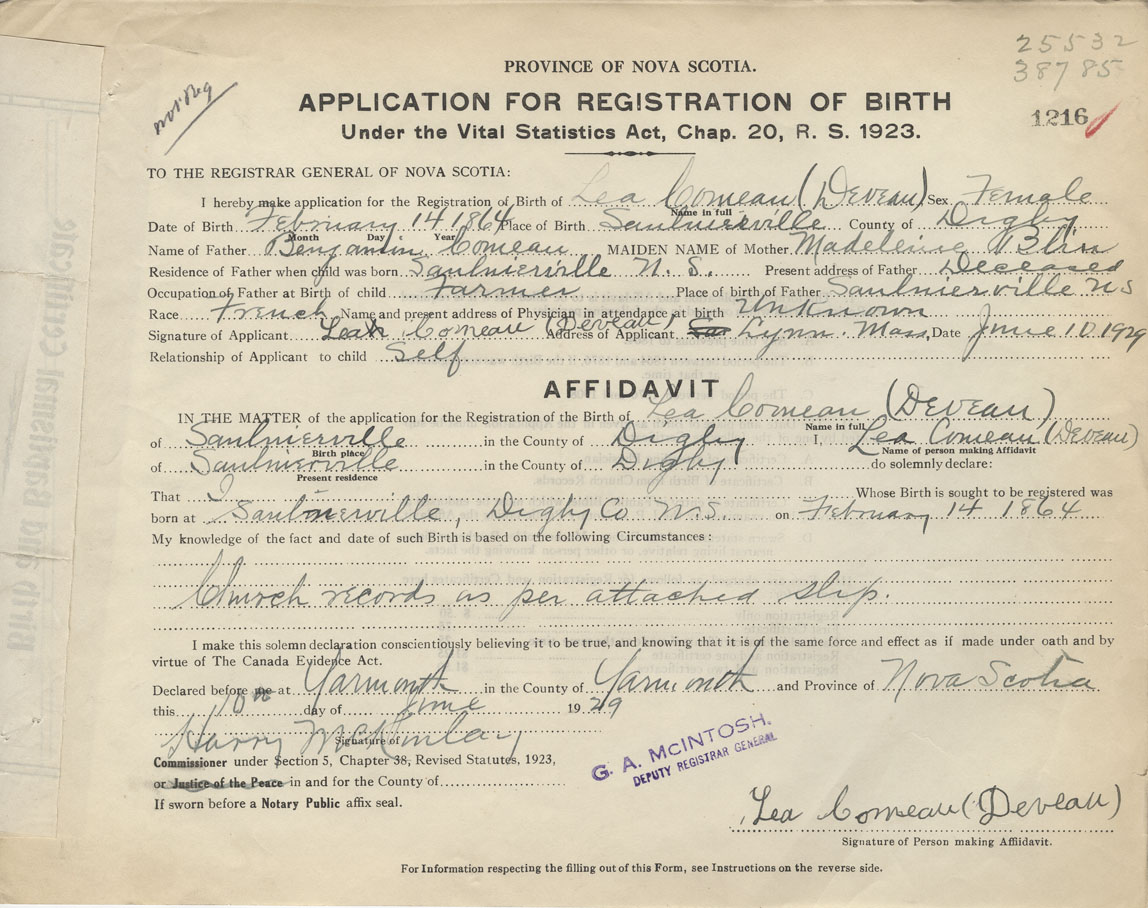 25532
38785
PROVINCE OF NOVA SCOTIA.
not Reg
APPLICATION FOR REGISTRATION OF BIRTH
1216
Under the Vital Statistics Act, Chap. 20, R. S. 1923.
TO THE REGISTRAR GENERAL OF NOVA SCOTIA:
I hereby make application for the Registration of Birth of Lea Comeau (Deveau) Sex Female
Name in full
Date of Birth February 14 1864 Place of Birth Saulnierville County of Digby
Month Day Year
Name of Father Benjamin Comeau MAIDEN NAME of Mother Madeleine Blin
Residence of Father when child was born Saulnierville N. S. Present address of Father Deceased
Occupation of Father at Birth of child Farmer Place of birth of Father Saulnierville N S
Race French Name and present address of Physician in attendance at birth Unknown
Signature of Applicant Leah Comeau (Deveau) Address of Applicant Lynn. Mass, Date June 10 1929
Relationship of Applicant to child Self
AFFIDAVIT
IN THE MATTER of the application for the Registration of the Birth of Lea Comeau (Deveau)
Name in full
of Saulnierville in the County of Digby I, Lea Comeau (Deveau)
Birth place Name of person making Affidavit
of Saulnierville in the County of Digby do solemnly declare:
Present residence
That I Whose Birth is sought to be registered was
born at Saulnierville, Digby Co N.S. on February 14 1864
My knowledge of the fact and date of such Birth is based on the following Circumstances:
Church records as per attached slip.
I make this solemn declaration conscientiously believing it to be true, and knowing that it is of the same force and effect as if made under oath and by
virtue of The Canada Evidence Act.
Declared before me at Yarmouth in the County of Yarmouth and Province of Nova Scotia
this 10th day of June 1929
Harry McKinlay
Signature of
Commissioner under Section 5, Chapter 38, Revised Statutes, 1923,
or Justice of the Peace in and for the County of
If sworn before a Notary Public affix seal.
G. A. McINTOSH.
DEPUTY REGISTRAR GENERAL
Lea Comeau (Deveau)
Signature of Person making Affiidavit.
For Information respecting the filling out of this Form, see Instructions on the reverse side.
Birth and Baptismal Certificate